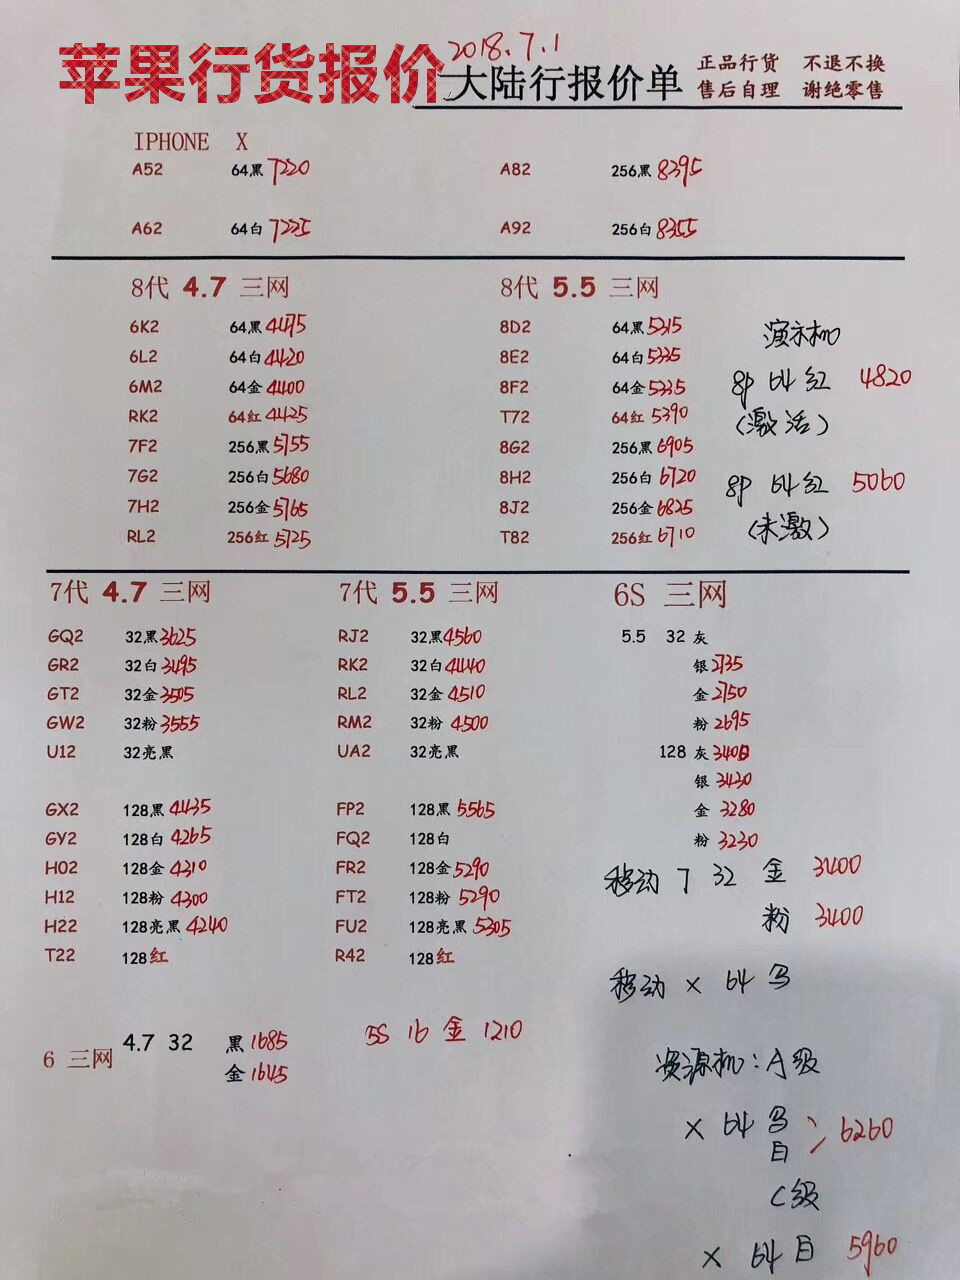 苹果行货报价 2018.7.1
大陆行报价单 正品行货 不退不换
售后自理 谢绝零售
IPHONE X
A52 64黑 7220 A82 256黑 8395
A62 64白 7225 A92 256白 8355
8代 4.7 三网 8代 5.5 三网
6K2 64黑 4475 8D2 64黑 5315 演示机
6L2 64白 4420 8E2 64白 5335
6M2 64金 4400 8F2 64金 5335 8P 64 红 4820
RK2 64红 4425 T72 64红 5390 (激活)
7F2 256黑 5755 8G2 256黑 6905
7G2 256白 5680 8H2 256白 6720 8P 64 红 5060
7H2 256金 5765 8J2 256金 6825
RL2 256红 5725 T82 256红 6710 (未激)
7代 4.7 三网 7代 5.5 三网 6S 三网
GQ2 32黑 3625 RJ2 32黑 4560 5.5 32 灰
GR2 32白 3495 RK2 32白 4440 银 2735
GT2 32金 3505 RL2 32金 4510 金 2750
GW2 32粉 3555 RM2 32粉 4500 粉 2695
U12 32亮黑 UA2 32亮黑 128 灰
银 3430
GX2 128黑 4435 FP2 128黑 5565 金 3280
GY2 128白 4265 FQ2 128白 粉 3230
H02 128金 4310 FR2 128金 5290 移动 7 32 金 3400
H12 128粉 4300 FT2 128粉 5290 粉 3400
H22 128亮黑 4240 FU2 128亮黑 5305
T22 128红 R42 128红
移动 X 64
6 三网 4.7 32 黑 1685 5S 16 金 1210
金 1645
资源机: A级
X 64 6260
C级
X 64 5960